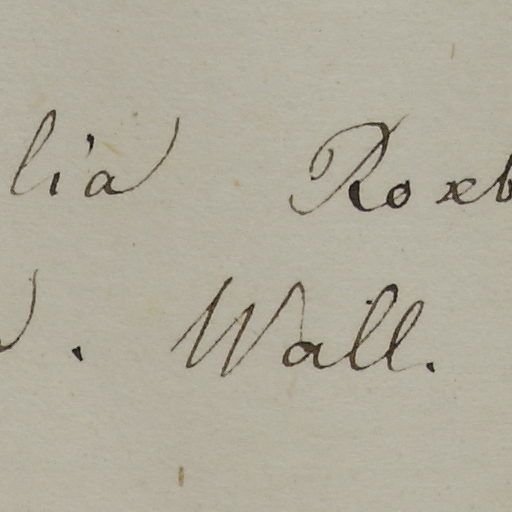 lia Roxb
. Wall.